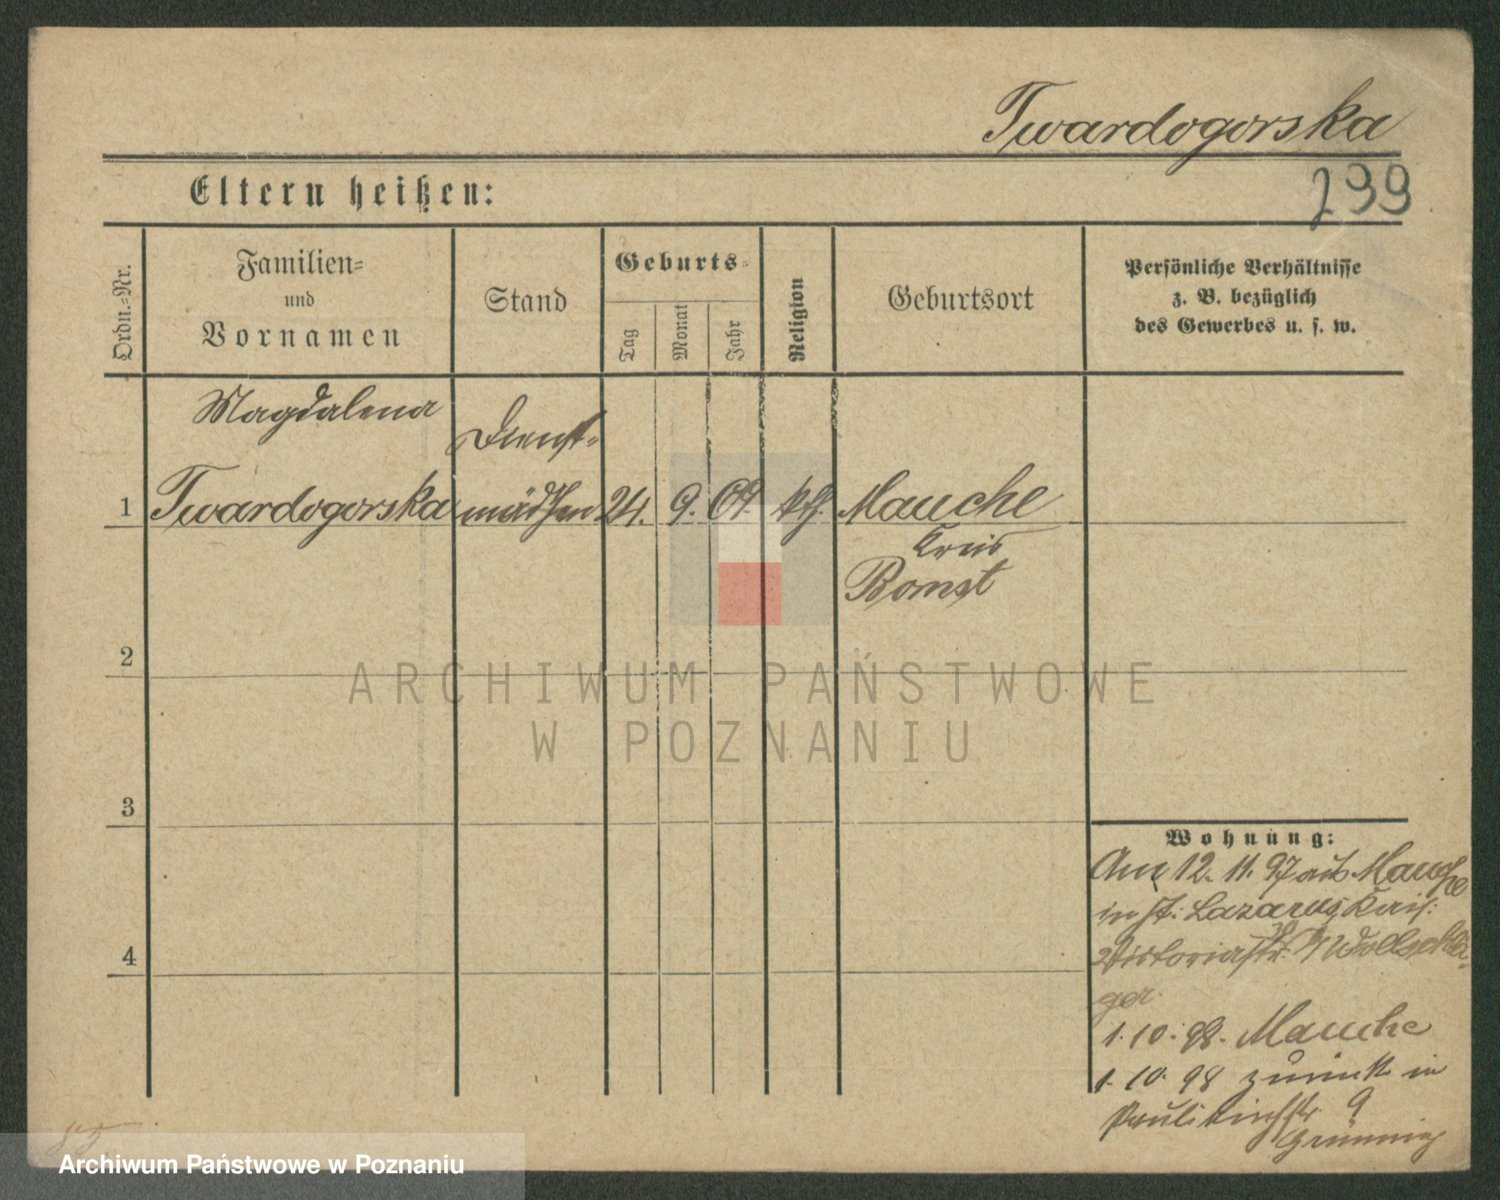 Twardogorska
299
Eltern heißen:
Ordn.=Nr.
Familien=
und
Vornamen
Stand
Geburts=
Tag
Monat
Jahr
Religion
Geburtsort
Persönliche Verhältnisse
z. B. bezüglich
des Gewerbes u. s. w.
Magdalena
Dienst=
1 Twardogorska mädchen 24. 9. kth. Mauche
Kreis
Bomst
2
3
4
Wohnung:
Am 12. 11. 97 aus Mauche
in St. Lazarus
Victoriastr.
1. 10. 98. Mauche
1. 10. 98 zurück in
Paulikirchstr 9
ARCHIWUM PAŃSTWOWE
W POZNANIU
Archiwum Państwowe w Poznaniu